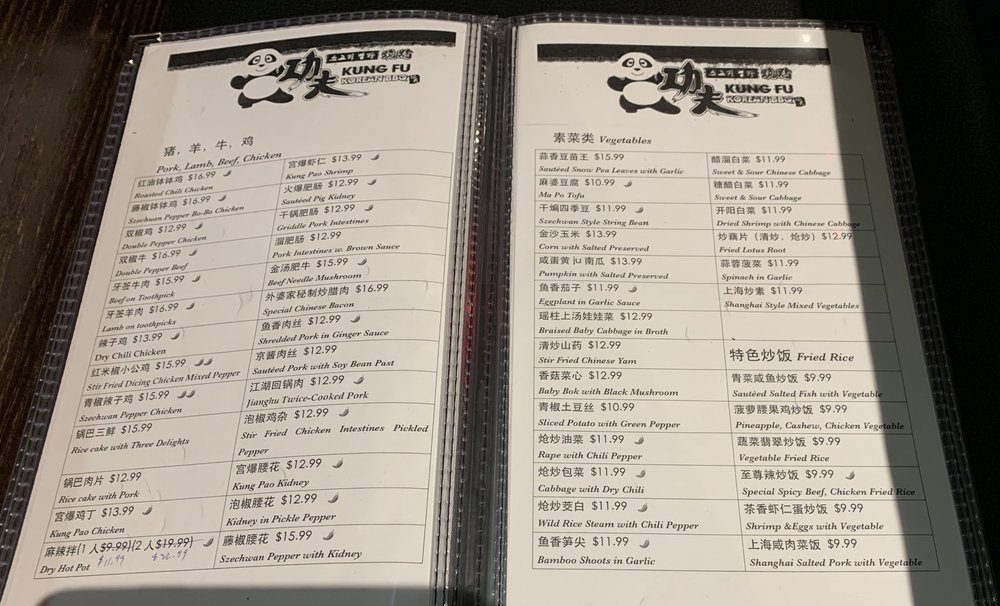 功夫
KUNG FU
KOREAN BBQ
猪，羊，牛，鸡
Pork, Lamb, Beef, Chicken
红油钵钵鸡 $16.99
Roasted Chili Chicken
藤椒钵钵鸡 $16.99
Szechwan Pepper Bo-Bo Chicken
双椒鸡 $12.99
Double Pepper Chicken
双椒牛 $16.99
Double Pepper Beef
牙签牛肉 $15.99
Beef on Toothpick
牙签羊肉 $16.99
Lamb on toothpicks
辣子鸡 $13.99
Dry Chili Chicken
红米椒小公鸡 $15.99
Stir Fried Dicing Chicken Mixed Pepper
青椒辣子鸡 $15.99
Szechwan Pepper Chicken
锅巴三鲜 $15.99
Rice cake with Three Delights
锅巴肉片 $12.99
Rice cake with Pork
宫爆鸡丁 $13.99
Kung Pao Chicken
麻辣拌(1 人$9.99)(2 人$19.99)
$11.99 $22.99
Dry Hot Pot
宫爆虾仁 $13.99
Kung Pao Shrimp
火爆肥肠 $12.99
Sautéed Pig Kidney
干锅肥肠 $12.99
Griddle Pork Intestines
溜肥肠 $12.99
Pork Intestines w. Brown Sauce
金汤肥牛 $15.99
Beef Needle Mushroom
外婆家秘制炒腊肉 $16.99
Special Chinese Bacon
鱼香肉丝 $12.99
Shredded Pork in Ginger Sauce
京酱肉丝 $12.99
Sautéed Pork with Soy Bean Past
江湖回锅肉 $12.99
Jianghu Twice-Cooked Pork
泡椒鸡杂 $12.99
Stir Fried Chicken Intestines Pickled
Pepper
宫爆腰花 $12.99
Kung Pao Kidney
泡椒腰花 $12.99
Kidney in Pickle Pepper
藤椒腰花 $15.99
Szechwan Pepper with Kidney
功夫
KUNG FU
KOREAN BBQ
素菜类 Vegetables
蒜香豆苗王 $15.99
Sautéed Snow Pea Leaves with Garlic
麻婆豆腐 $10.99
Ma Po Tofu
干煸四季豆 $11.99
Szechwan Style String Bean
金沙玉米 $13.99
Corn with Salted Preserved
咸蛋黄 ju 南瓜 $13.99
Pumpkin with Salted Preserved
鱼香茄子 $11.99
Eggplant in Garlic Sauce
瑶柱上汤娃娃菜 $12.99
Braised Baby Cabbage in Broth
清炒山药 $12.99
Stir Fried Chinese Yam
香菇菜心 $12.99
Baby Bok with Black Mushroom
青椒土豆丝 $10.99
Sliced Potato with Green Pepper
炝炒油菜 $11.99
Rape with Chili Pepper
炝炒包菜 $11.99
Cabbage with Dry Chili
炝炒茭白 $11.99
Wild Rice Steam with Chili Pepper
鱼香笋尖 $11.99
Bamboo Shoots in Garlic
醋溜白菜 $11.99
Sweet & Sour Chinese Cabbage
糖醋白菜 $11.99
Sweet & Sour Cabbage
开阳白菜 $11.99
Dried Shrimp with Chinese Cabbage
炒藕片（清炒，炝炒）$12.99
Fried Lotus Root
蒜蓉菠菜 $11.99
Spinach in Garlic
上海炒素 $11.99
Shanghai Style Mixed Vegetables
特色炒饭 Fried Rice
青菜咸鱼炒饭 $9.99
Sautéed Salted Fish with Vegetable
菠萝腰果鸡炒饭 $9.99
Pineapple, Cashew, Chicken Vegetable
蔬菜翡翠炒饭 $9.99
Vegetable Fried Rice
至尊辣炒饭 $9.99
Special Spicy Beef, Chicken Fried Rice
茶香虾仁蛋炒饭 $9.99
Shrimp &Eggs with Vegetable
上海咸肉菜饭 $9.99
Shanghai Salted Pork with Vegetable